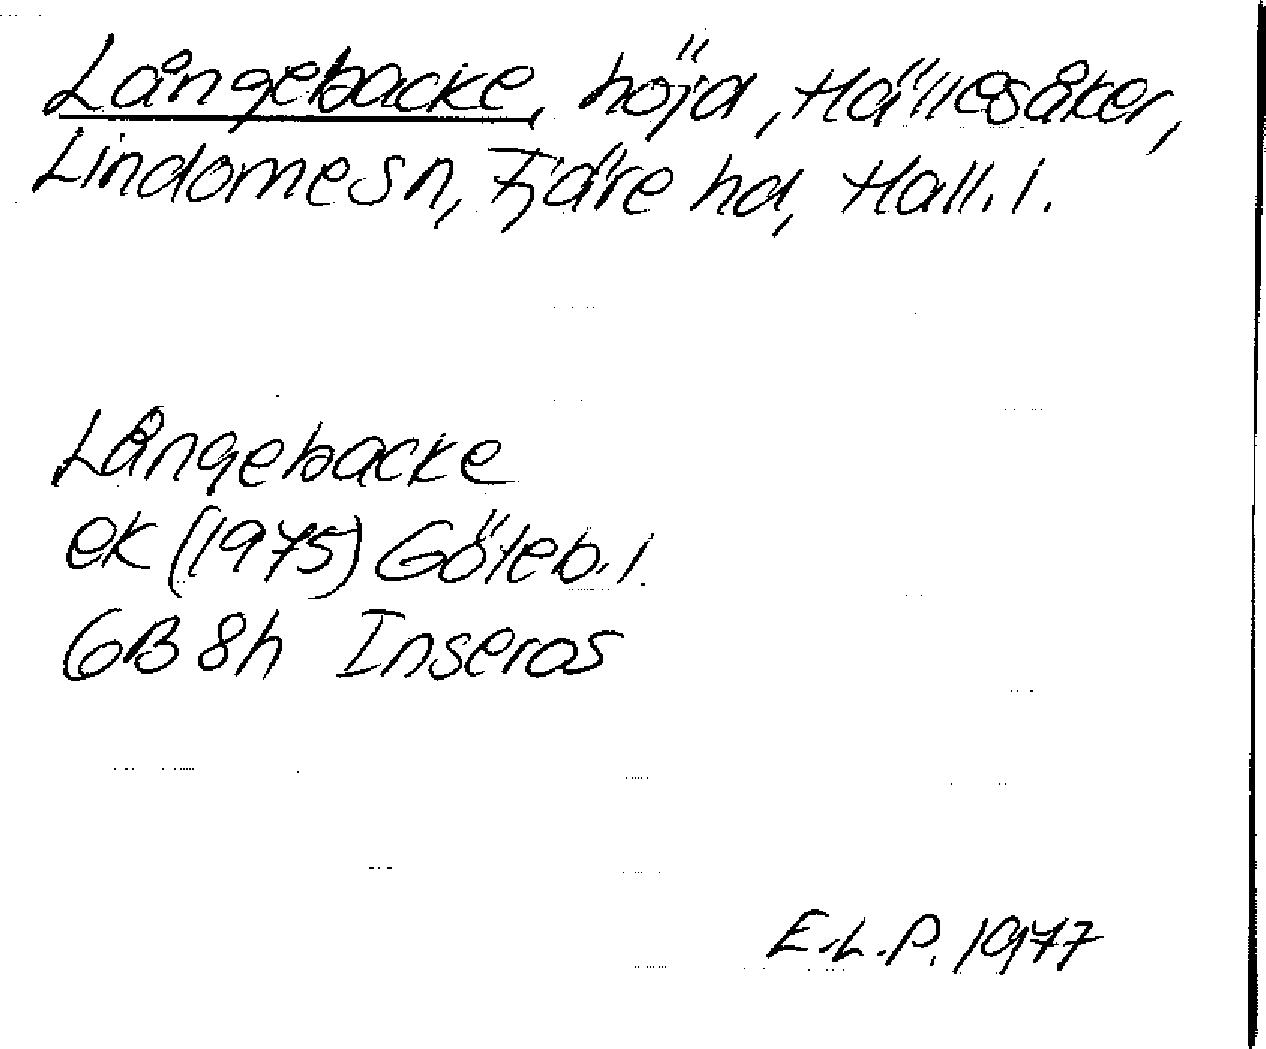 Långebacke, höjd, Hällesåker,
Lindome sn, Fjäre hd, Hall. l.
Långebacke
ek (1975) Göteb. l.
6B 8h Inseros
E.L.P. 1977